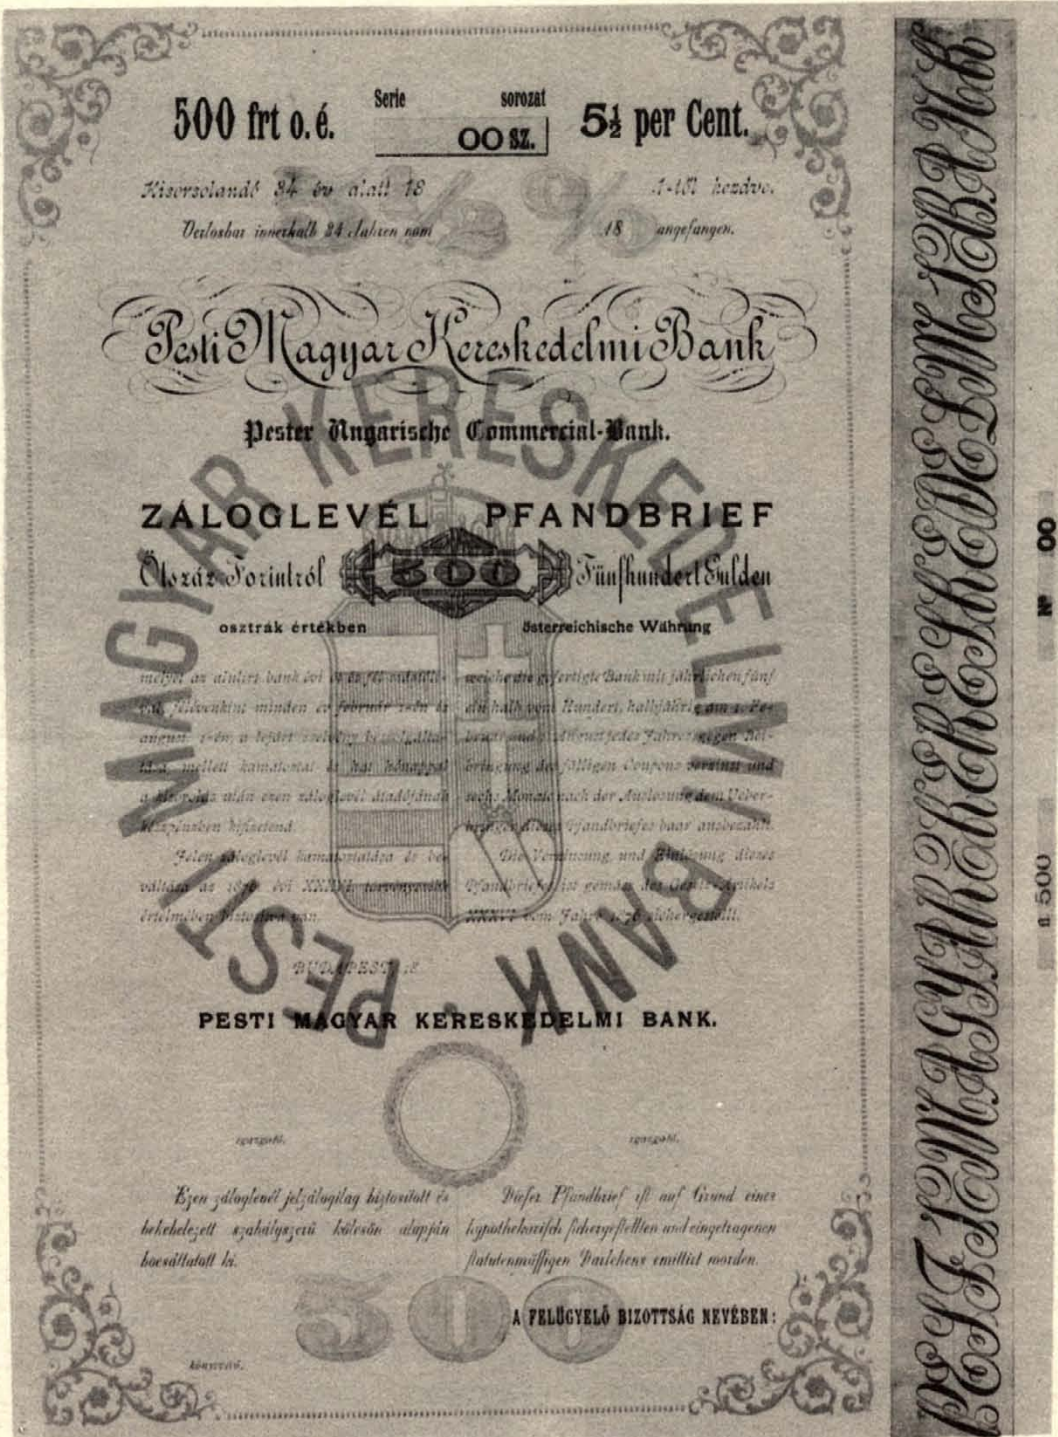 500 frt o. é.
Serie sorozat
00 sz.
5½ per Cent.
5½ %
Kisorsolandó 34 év alatt 18 1-től kezdve.
Verlosbar innerhalb 34 Jahren vom 18 angefangen.
Pesti Magyar Kereskedelmi Bank
Pester Ungarische Commercial-Bank.
ZÁLOGLEVÉL PFANDBRIEF
Ötszáz Forintról 500 Fünfhundert Gulden
osztrák értékben österreichische Währung
melyet az alulirt bank évi
minden év február 1-én és
august. 1-én, a lejárt szelvény
mellett kamatoztat és hat hónappal
a kisorsolás után ezen záloglevél átadójának
készpénzben kifizetend.
Jelen záloglevél kamatoztatása és be-
váltása az 1876. évi XXXVI. törvényczikk
értelmében biztosítva van.
welche die gefertigte Bank mit jährlichen fünf
ein halb vom Hundert, halbjährig am 1. Fe-
bruar und 1. August jedes Jahres gegen Bei-
bringung des fälligen Coupons verzinst und
sechs Monate nach der Auslosung dem Ueber-
bringer dieses Pfandbriefes baar ausbezahlt.
Die Verzinsung und Einlösung dieses
Pfandbriefes ist gemäss des Gesetz-Artikels
XXXVI vom Jahre 1876 sichergestellt.
BUDAPEST 18
PESTI MAGYAR KERESKEDELMI BANK.
igazgató. igazgató.
Ezen záloglevél jelzálogilag biztosított és
bekebelezett szabályszerű kölcsön alapján
bocsáttatott ki.
Dieser Pfandbrief ist auf Grund eines
hypothekarisch sichergestellten und eingetragenen
statutenmässigen Darlehens emittirt worden.
500
A FELÜGYELŐ BIZOTTSÁG NEVÉBEN:
könyvvivő.
PESTI MAGYAR KERESKEDELMI BANK
PESTI MAGYAR KERESKEDELMI BANK
Nº 8
a 500